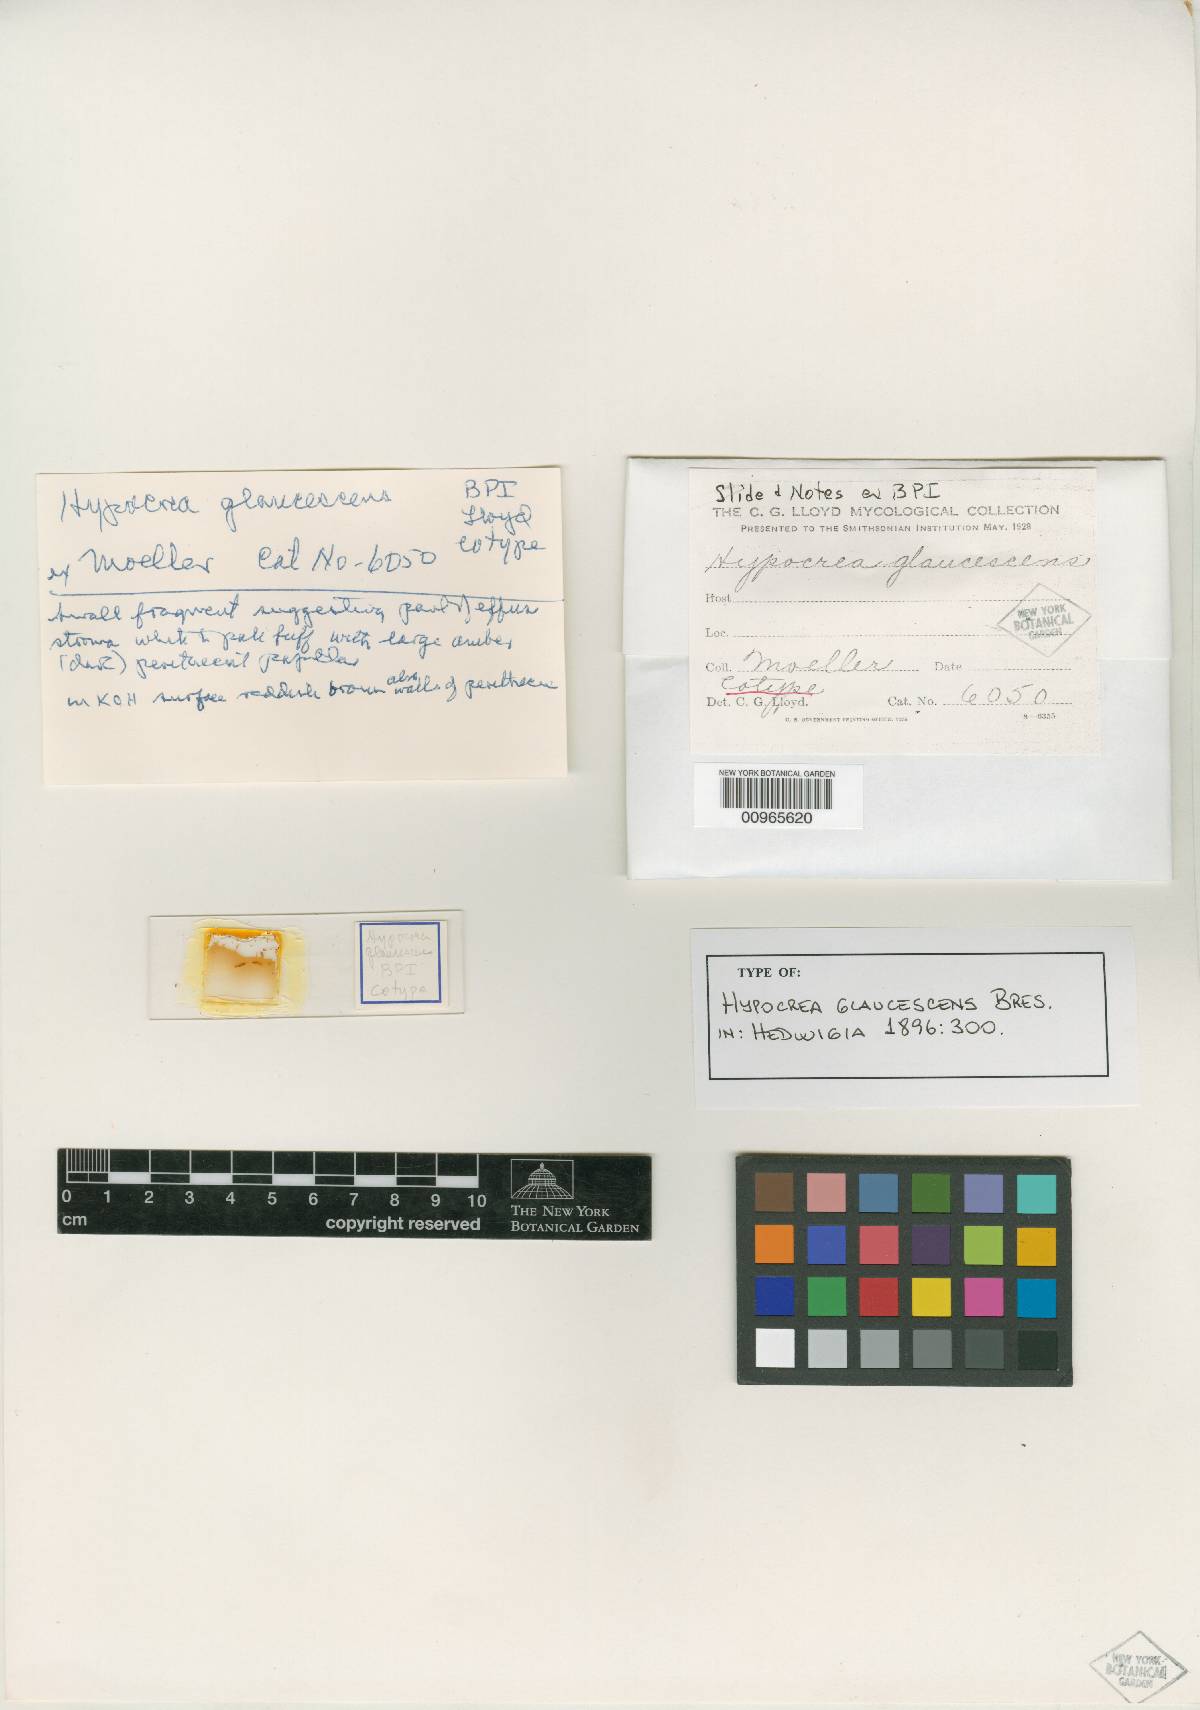 Hypocrea glaucescens
BPI
Lloyd
cotype
ex Moeller Cat No-6050
small fragment suggesting part of effuse
stroma white to pale buff with large amber
(dark) perithecial papillae
in KOH surface reddish brown also walls of perithecia
Slide & Notes ex BPI
THE C. G. LLOYD MYCOLOGICAL COLLECTION
PRESENTED TO THE SMITHSONIAN INSTITUTION MAY, 1928
Hypocrea glaucescens
Host
Loc.
NEW YORK
BOTANICAL
GARDEN
Coll. Moeller Date
Cotype
Det. C. G. Lloyd. Cat. No. 6050
U. S. GOVERNMENT PRINTING OFFICE: 1928 8—6355
NEW YORK BOTANICAL GARDEN
00965620
Hypocrea
glaucescens
BPI
Cotype
TYPE OF:
HYPOCREA GLAUCESCENS BRES.
IN: HEDWIGIA 1896:300.
0 1 2 3 4 5 6 7 8 9 10
cm
copyright reserved
THE NEW YORK
BOTANICAL GARDEN
NEW YORK
BOTANICAL
GARDEN